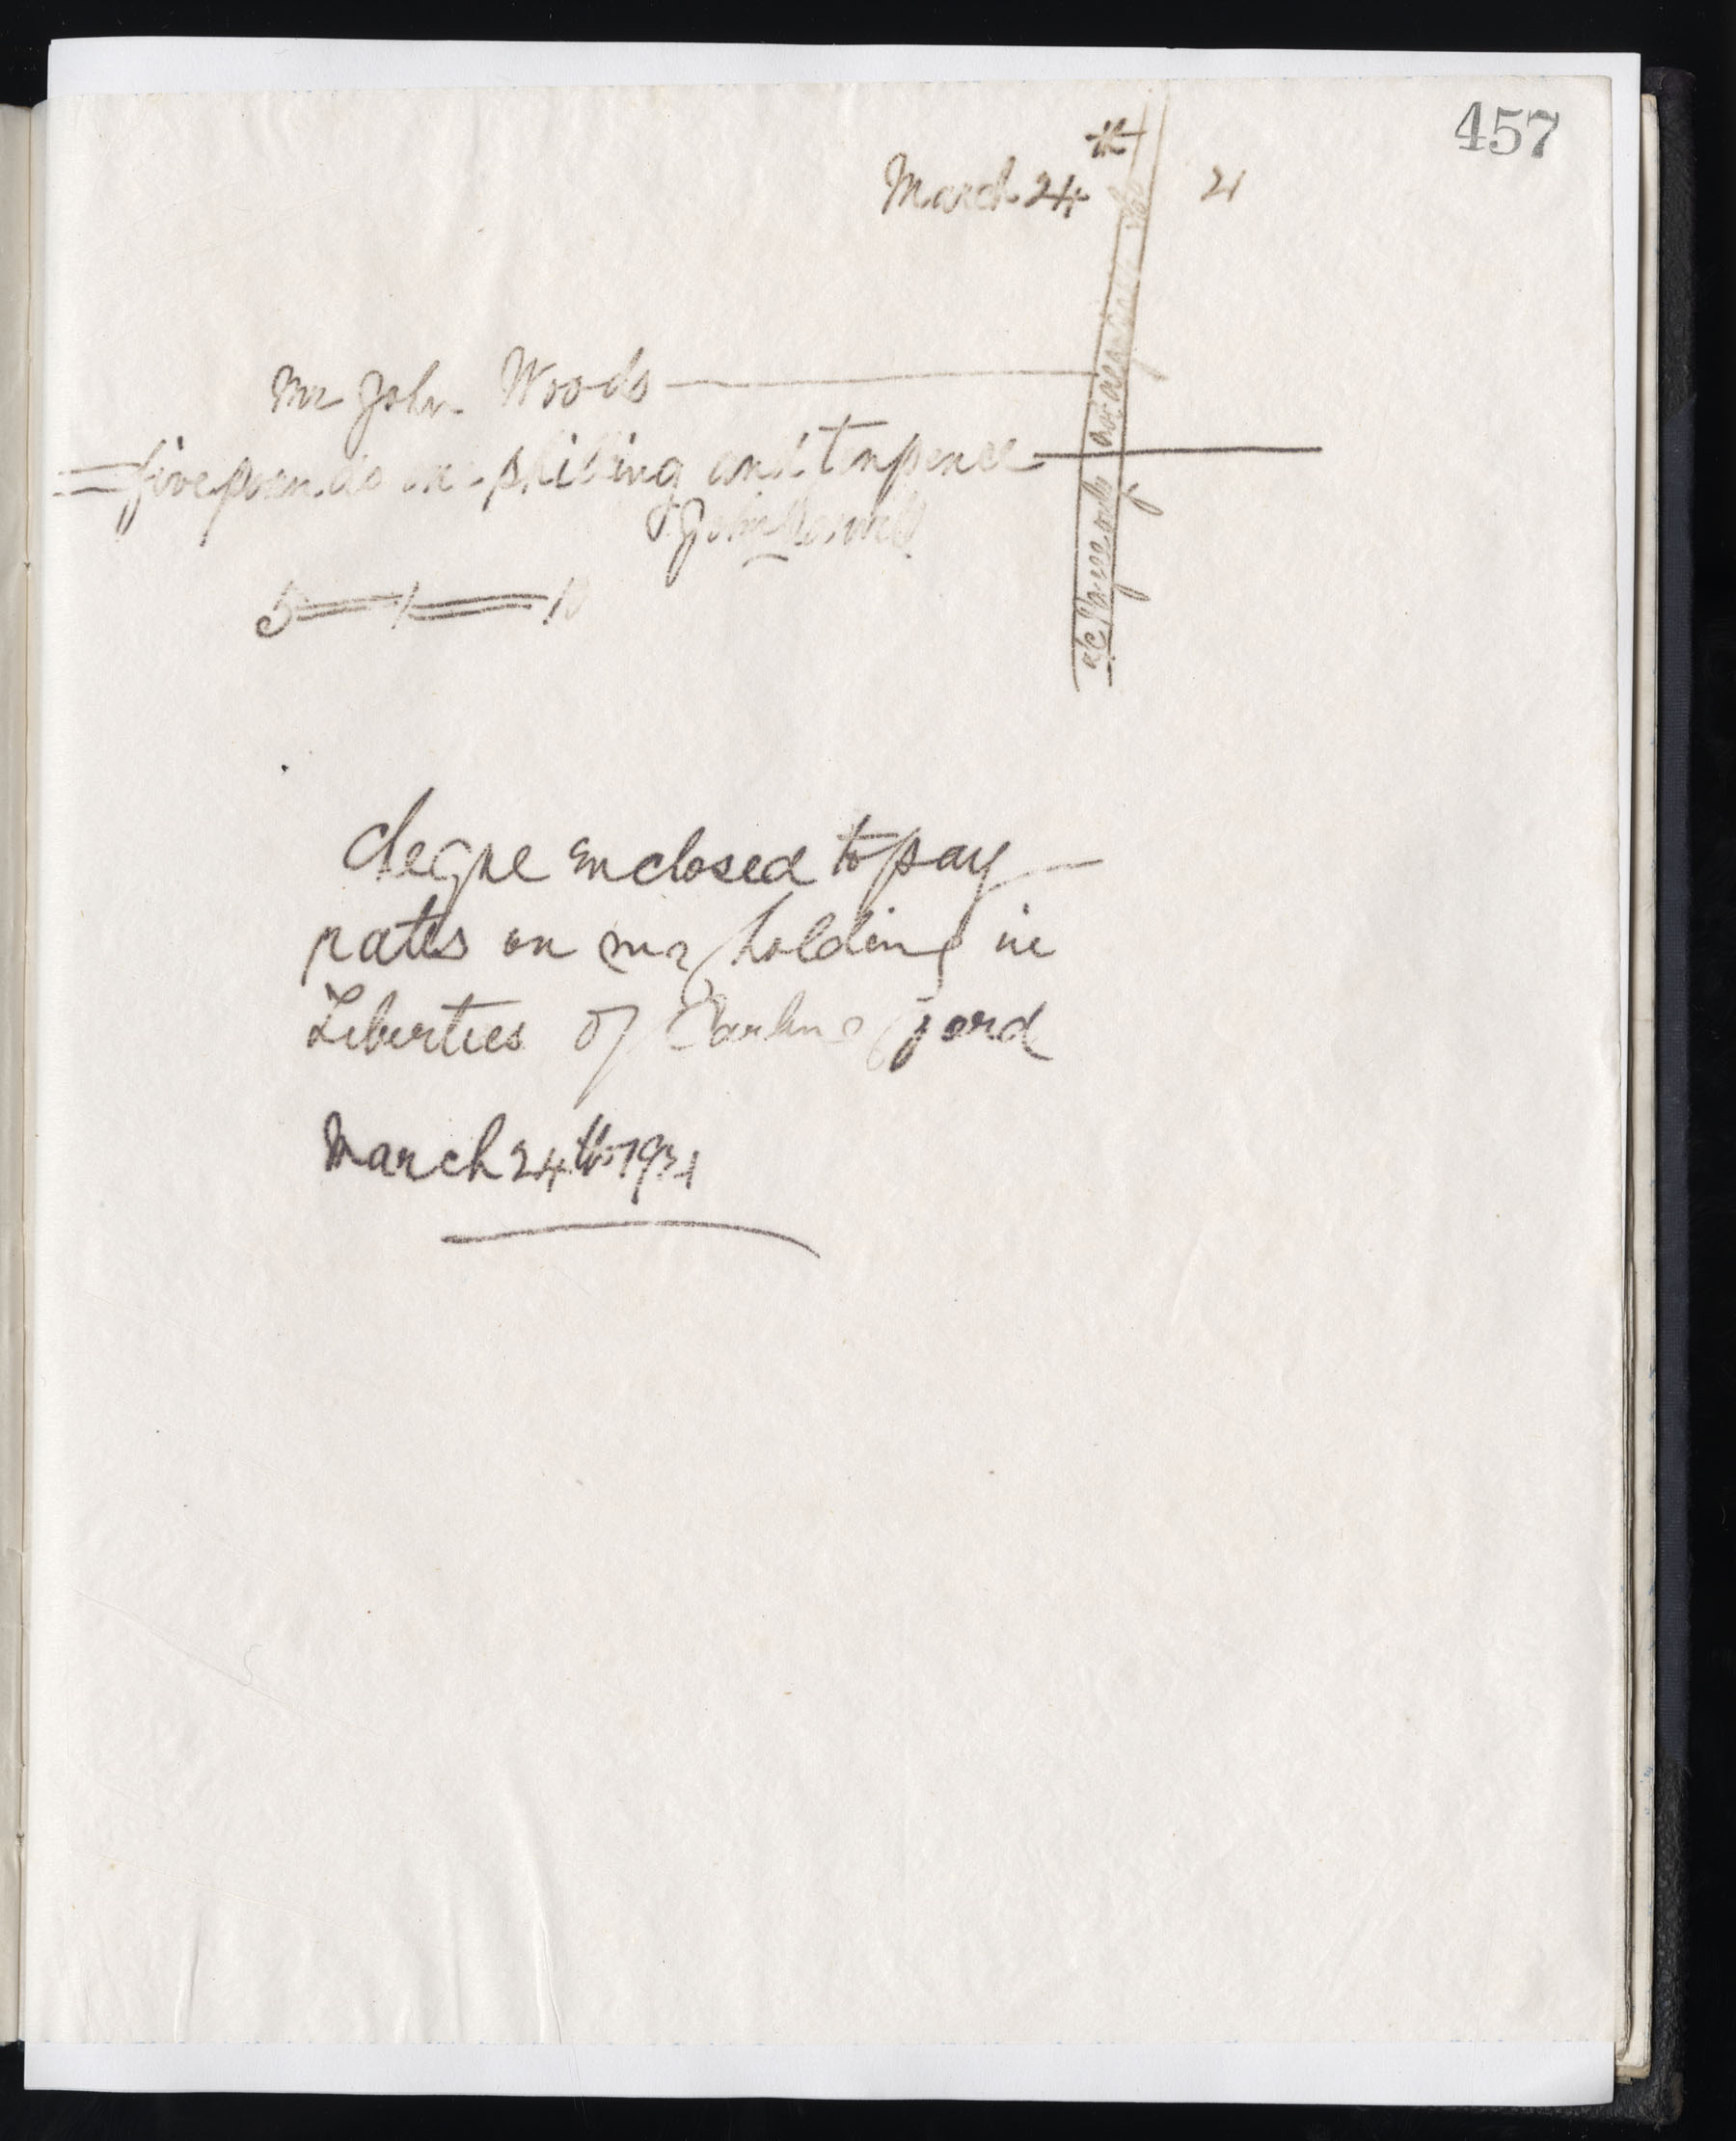 457
March 24th 21
Mr John Woods
five pounds one shilling and tenpence
John
5 1 10
a/c Payee only not negotiable
cheque enclosed to pay
rates on my holding in
Liberties of Carlingford
March 24th 1921